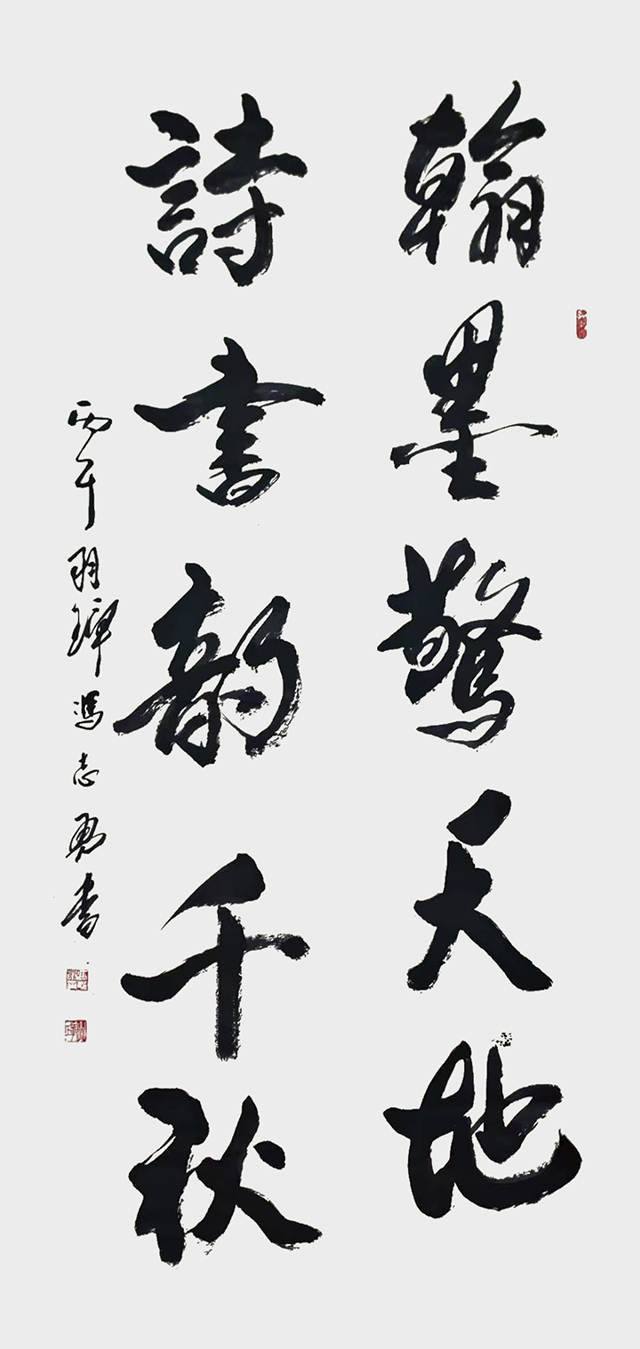 翰墨驚天地
詩書韵千秋
丙午 羽鐸 馮志勇書